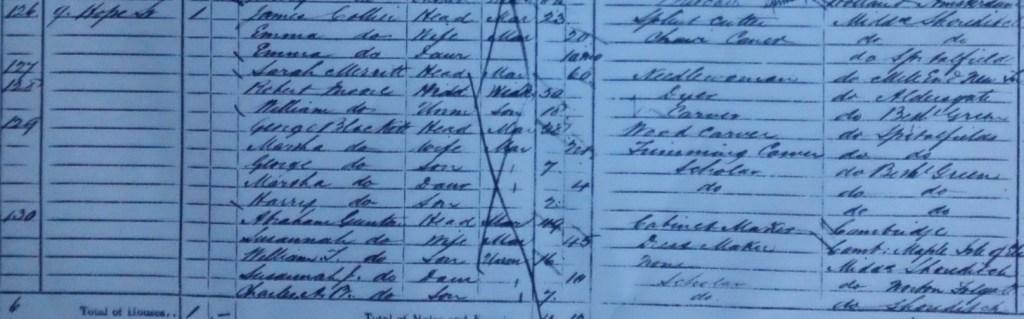 126 9. Hope St 1 James Collier Head Mar 23 Splint Cutter Midd. Shoreditch
Emma do Wife Mar 20 Chair Caner do do
Emma do Daur 10 mo do Spitalfield
127 Sarah Merritt Head Mar 60 Needlewoman do Mile End New T
128 Robert Moore Head 50 Dyer do Aldersgate
William do Unm Son 18 Carver do Beth Green
129 George Blackett Head Mar Wood Carver do Spitalfields
Martha do Wife Mar Trimming do do
George do Son 7 Scholar do Beth Green
Martha do Daur 4 do do do
Harry do Son 2 do do
130 Abraham Gunter Head Mar 49 Cabinet Maker Cambridge
Susannah do Wife Mar 45 Dress Maker Camb: Isle of
William do Son Unm 16 None Midds Shoreditch
Susannah J. do Daur 10 Scholar do Norton Folgate
Charles do Son 7 do do Shoreditch
6 Total of Houses.. 1 —